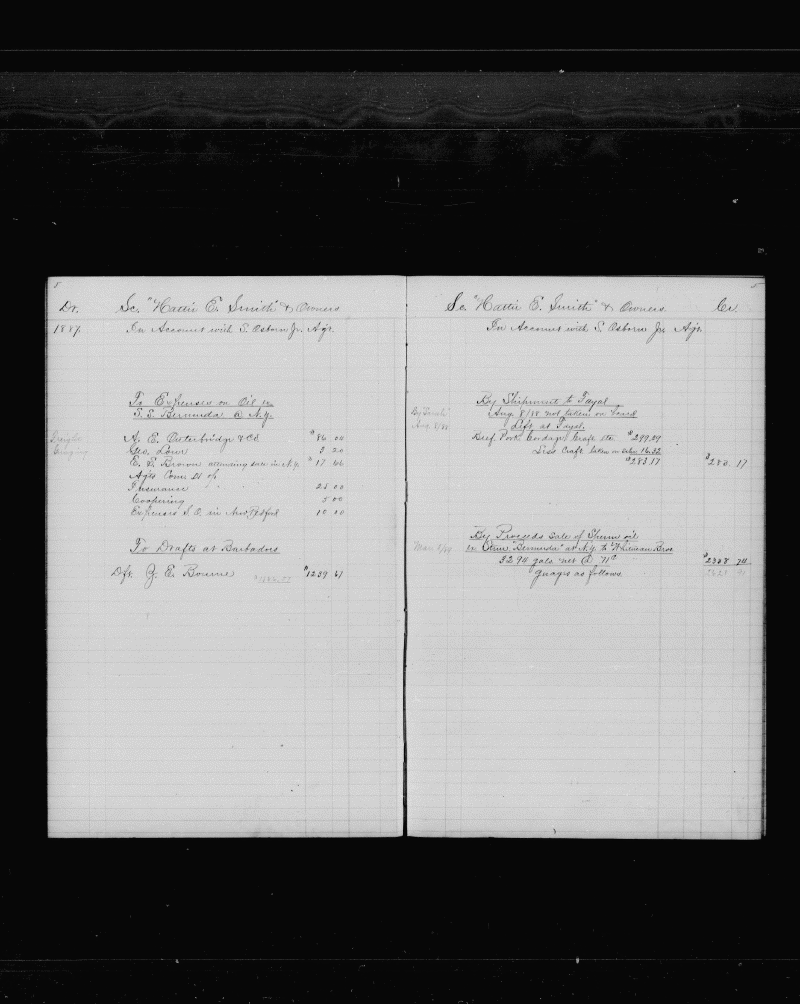 5
Dr. Sc. "Hattie E. Smith" & Owners
1887. In Account with S. Osborn Jr. Agt.
To Expenses on Oil in
S. S. Bermuda @ N.Y.
Freight A. E. Outerbridge & Co $ 86 04
Gauging Geo. 3 20
E. E. Brown attending sale in N.Y. " 17 66
Agts Com
Insurance 25 00
Coopering 5 00
Expenses S.O. in New Bedford 10 00
To Drafts at Barbados
Dft. G. E. Bourne $1239 61
5
Sc. "Hattie E. Smith" & Owners. Cr.
In Account with S. Osborn Jr. Agt.
By Shipment to Fayal
Aug. 8/88 not taken on board
Left at Fayal.
Aug. 8/88
Beef Pork, Cordage Craft etc $299.49
Less Craft taken in 16.32
$283 17 $283. 17
By Proceeds Sale of Sperm oil
Mar. 8/89 in Stmr "Bermuda" at N.Y. to Whitman Bros
3294 gals net @ 71c $2338 74
guages as follows